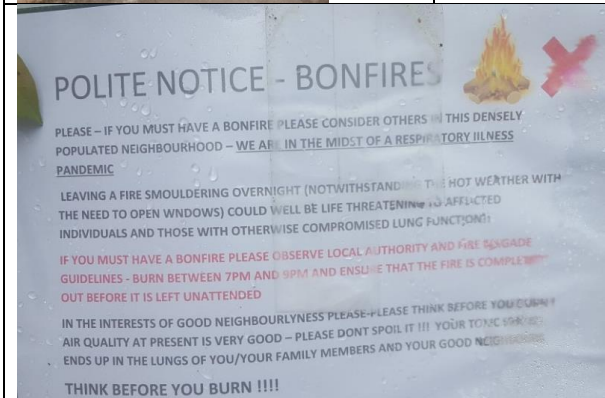 POLITE NOTICE - BONFIRES
PLEASE – IF YOU MUST HAVE A BONFIRE PLEASE CONSIDER OTHERS IN THIS DENSELY
POPULATED NEIGHBOURHOOD – WE ARE IN THE MIDST OF A RESPIRATORY IILNESS
PANDEMIC
LEAVING A FIRE SMOULDERING OVERNIGHT (NOTWITHSTANDING THE HOT WEATHER WITH
THE NEED TO OPEN WNDOWS) COULD WELL BE LIFE THREATENING TO AFFLICTED
INDIVIDUALS AND THOSE WITH OTHERWISE COMPROMISED LUNG FUNCTION!!
IF YOU MUST HAVE A BONFIRE PLEASE OBSERVE LOCAL AUTHORITY AND FIRE BRIGADE
GUIDELINES - BURN BETWEEN 7PM AND 9PM AND ENSURE THAT THE FIRE IS COMPLETELY
OUT BEFORE IT IS LEFT UNATTENDED
IN THE INTERESTS OF GOOD NEIGHBOURLYNESS PLEASE-PLEASE THINK BEFORE YOU BURN!!
AIR QUALITY AT PRESENT IS VERY GOOD – PLEASE DONT SPOIL IT !!! YOUR TOXIC SMOKE
ENDS UP IN THE LUNGS OF YOU/YOUR FAMILY MEMBERS AND YOUR GOOD NEIGHBOURS
THINK BEFORE YOU BURN !!!!